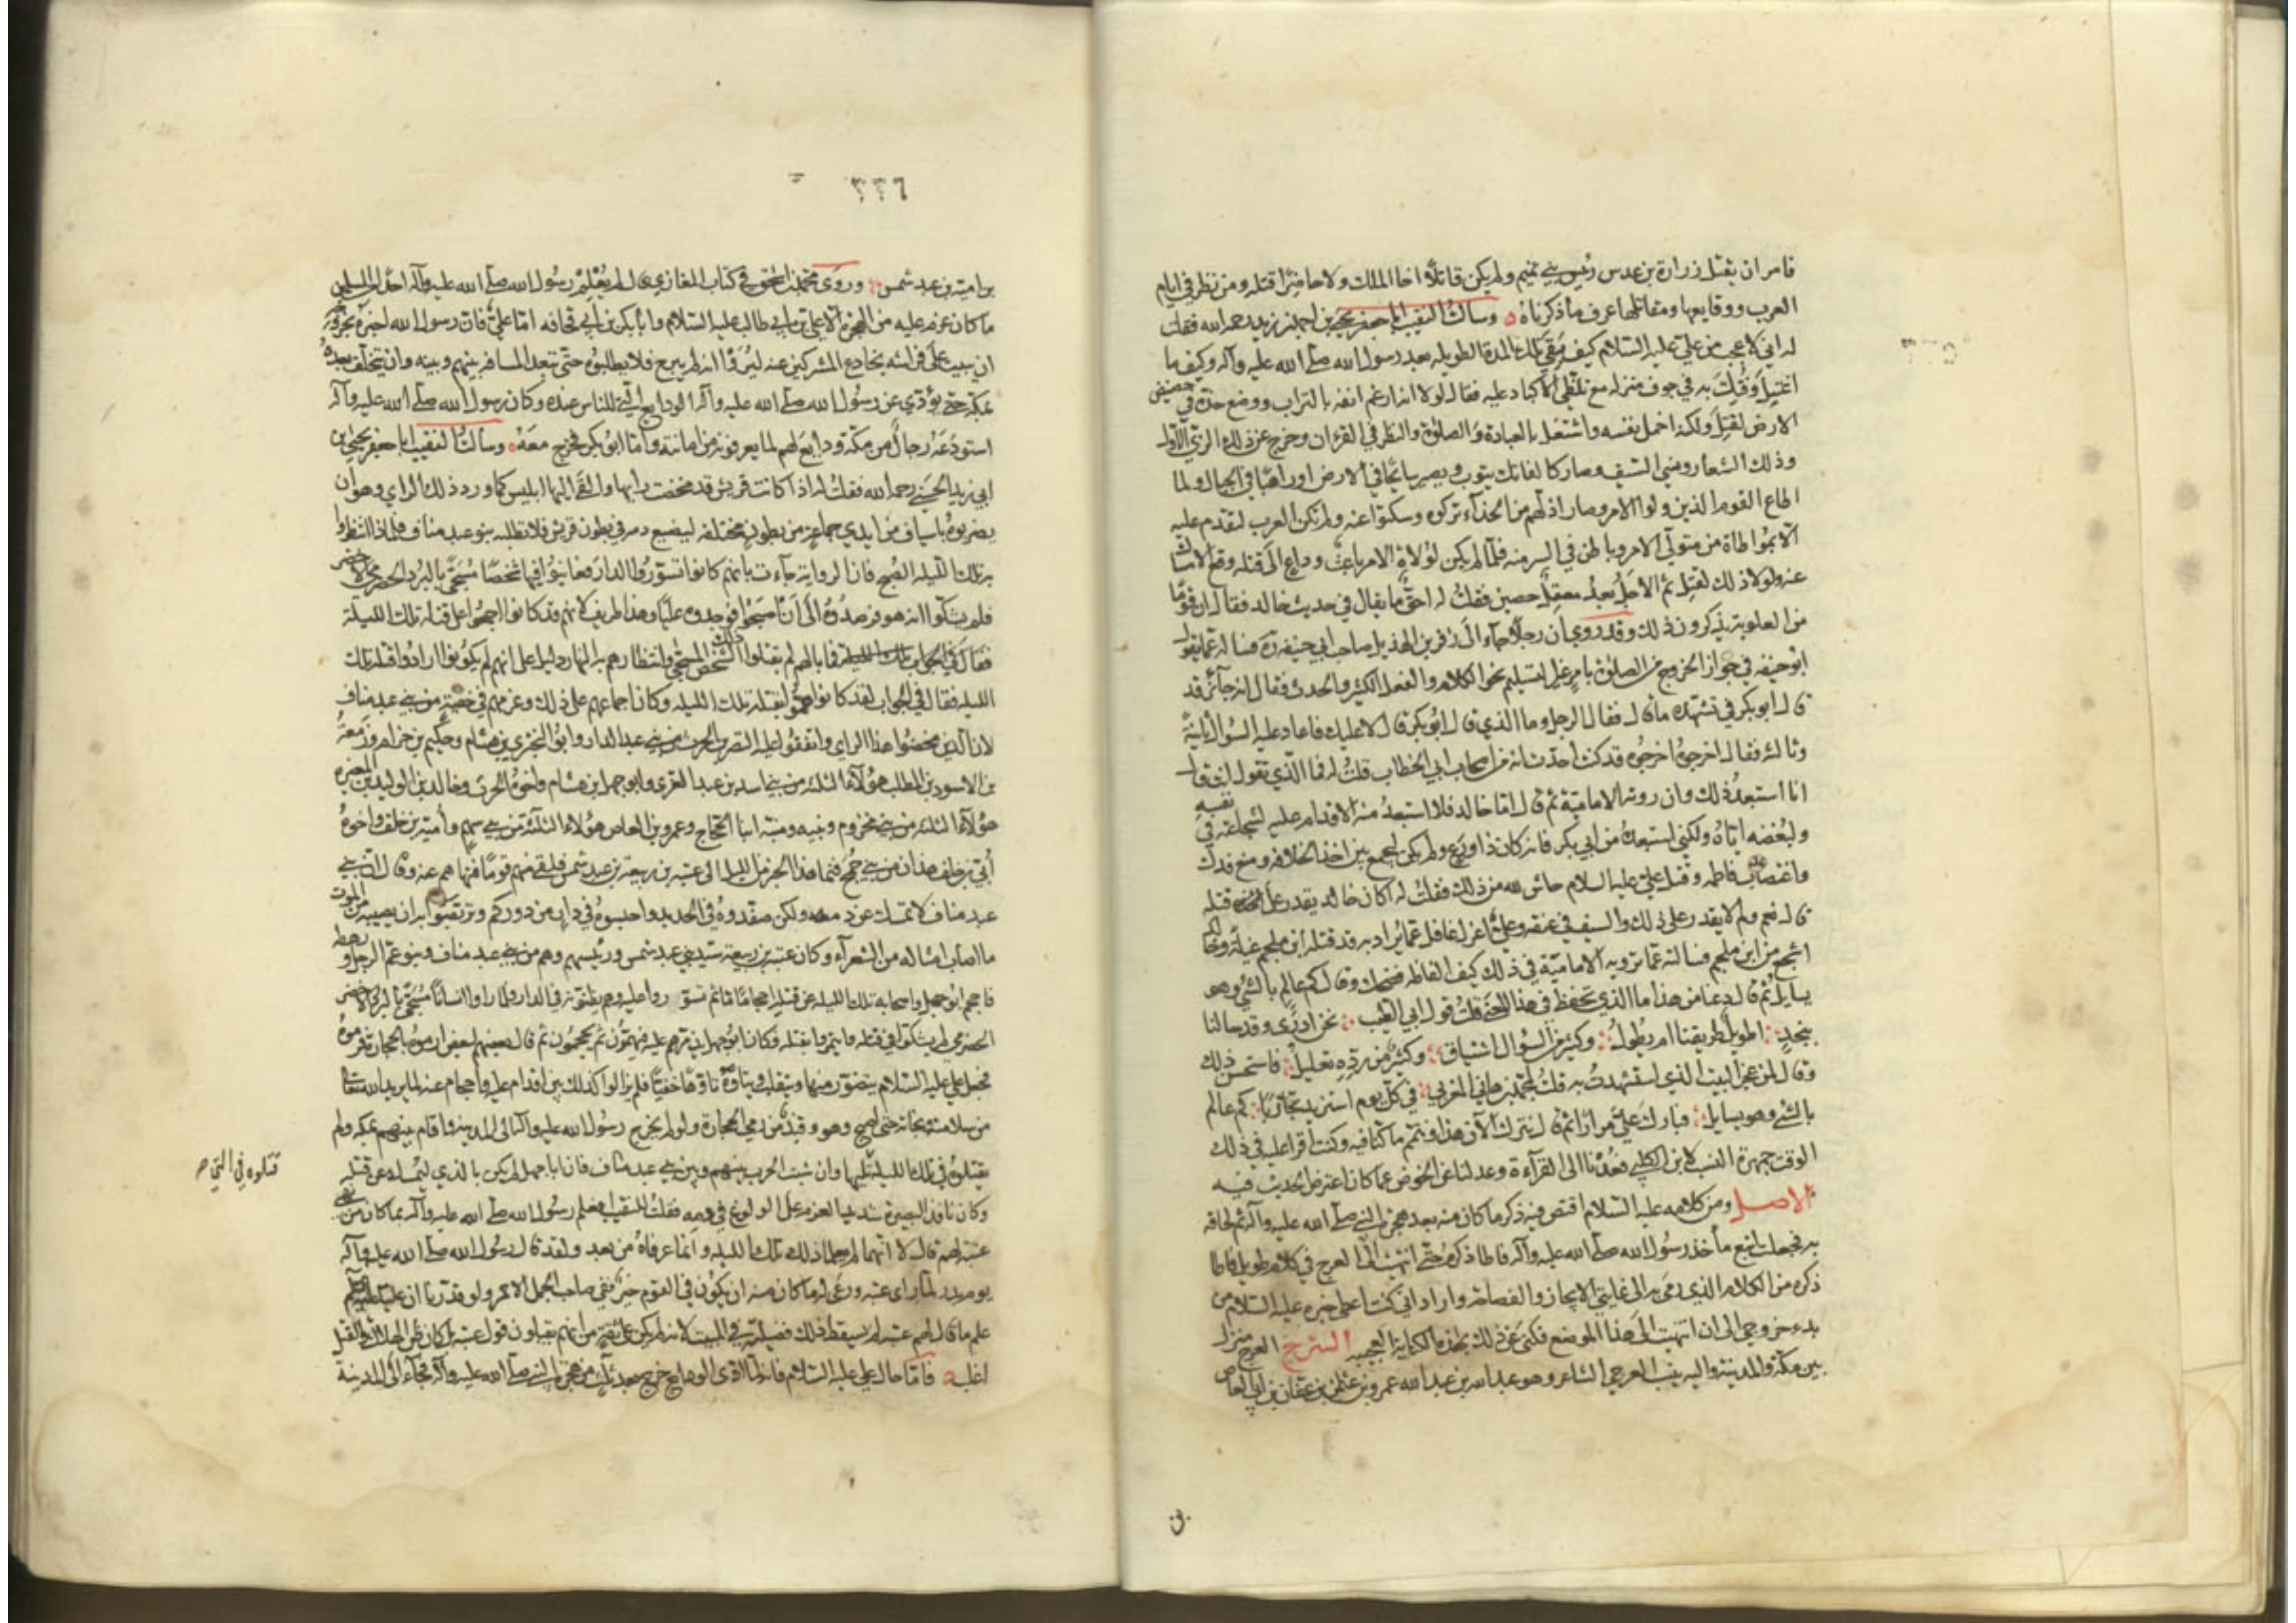 فامر ان يقتل زرارة بن عدس رئيس بني تميم ولم يكن قاتلاً اخا الملك ولا حاضراً قتله ومن نظر في ايام
العرب ووقايعها ومقاتلها عرف ما ذكرناه وسالت النقيب ابا جعفر يحيى بن ابي زيد رحمه الله فقلت
له اني لاعجب من علي عليه السلام كيف بقي تلك المدة الطويله بعد رسول الله صلى الله عليه وآله وكيف ما
اغتيل وفتك به في جوف منزله مع تلظي الاكباد عليه فقال لولا انه ارغم انفه بالتراب ووضع خده في حضيض
الارض لقتل ولكنه اخمل نفسه واشتغل بالعبادة والصلوة والنظر في القرءان وخرج عن ذلك الزي الاول
وذلك الشعار ونسي السيف وصار كالفاتك يتوب ويصير سائحا في الارض او راهبا في الجبال ولما
اطاع القوم الذين ولوا الامر وصار اذل لهم من الحذاء تركوه وسكتوا عنه ولم تكن العرب لتقدم عليه
الا بمواطاة من متولي الامر وباطن في السر منه فلما لم يكن لولاة الامر باعث وداع الى قتله وقع الامساك
عنه ولولا ذلك لقتل ثم الاجل بعد معقل حصين فقلت له احق ما يقال في حديث خالد فقال ان قوما
من العلوية يذكرون ذلك وقد روي ان رجلا جاء الى زفر بن الهذيل صاحب ابي حنيفة فساله عما يقول
ابو حنيفه في جواز الخروج من الصلوة بامر غير التسليم نحو الكلام والفعل الكثير والحدث فقال انه جائز قد
قال ابو بكر في تشهده ما قال فقال الرجل وما الذي قال ابو بكر قال لا عليك فاعاد عليه السؤال ثانية
وثالثة فقال اخرجوه اخرجوه قد كنت احدث انه من اصحاب ابي الخطاب قلت له فما الذي تقوله انت قال
انا استبعد ذلك وان روته الامامية ثم قال اما خالد فلا استبعد منه الاقدام عليه لشجاعته في نفسه
ولبغضه اياه ولكني استبعده من ابي بكر فانه كان ذا ورع ولم يكن ليجمع بين اخذ الخلافه ومنع فدك
واغضاب فاطمه وقتل علي عليه السلام حاش لله من ذلك فقلت له اكان خالد يقدر على قتله
قال نعم ولم لا يقدر على ذلك والسيف في عنقه وعلي اعزل غافل عما يراد به قد قتله ابن ملجم غيلة وخالد
اشجع من ابن ملجم فسالته عما ترويه الامامية في ذلك كيف الفاظه فضحك وقال كم عالم بالشئ وهو
يسايل ثم قال دعنا من هذا ما الذي تحفظ في هذا المعنى قلت قول ابي الطيب نحن ادرى وقد سالنا
بنجد اطويل طريقنا ام يطول وكثير من السؤال اشتياق وكثير من رده تعليل فاستحسن ذلك
وقال لمن عجز البيت الذي استشهدت به قلت لمحمد بن هاني المغربي في كل يوم استزيد تجاربا كم عالم
بالشئ وهو يسايل فبارك علي مرارا ثم قال نترك الآن هذا ونتمم ما كنا فيه وكنت اقرا عليه في ذلك
الوقت جمهرة النسب لابن الكلبي فعدنا الى القرآءة وعدلنا عن الخوض عما كان اعترض الحديث فيه
الاصل ومن كلامه عليه السلام اقتص فيه ذكر ما كان منه بعد هجرة النبي صلى الله عليه وآله ثم لحاقه
به فجعلت اتبع مأخذ رسول الله صلى الله عليه وآله فاطا ذكره حتى انتهيت الى العرج في كلام طويل فاطا
ذكره من الكلام الذي رمى به الى غايتي الايجاز والفصاحه واراد اني كنت اعطى خبره عليه السلام من
بدء خروجي الى ان انتهيت الى هذا الموضع فكنى عن ذلك بهذه الكناية العجيبه الشرح العرج منزل
بين مكة والمدينة واليه ينسب العرجي الشاعر وهو عبد الله بن عبد الله عمرو بن عثمن بن عفان بن ابي العاص
في
٣٣٦
بن امية بن عبد شمس وروى محمد بن اسحق في كتاب المغازي قال لم يعلم رسول الله صلى الله عليه وآله احدا من المسلمين
ما كان عزم عليه من الهجرة الا علي بن ابي طالب عليه السلام وابا بكر بن ابي قحافه اما علي فان رسول الله اخبره بخروجه
ان يبيت على فراشه يخادع المشركين عنه ليروا انه لم يبرح فلا يطلبوه حتى تبعد المسافه بينهم وبينه وان يتخلف بعده
بمكة حتى يؤدي عن رسول الله صلى الله عليه وآله الودايع التي للناس عنده وكان رسول الله صلى الله عليه وآله
استودعه رجال من مكة ودايع لهم لما يعرفونه من امانته واما ابو بكر فخرج معه وسألت النقيب ابا جعفر يحيى بن
ابي زيد الحسني رحمه الله فقلت له اذا كانت قريش قد محضت رايها والقى اليها ابليس كما ورد ذلك الراي وهو ان
يضربوه باسياف من ايدي جماعة من بطون مختلفه ليضيع دمه في بطون قريش فلا تطلبه بنو عبد مناف فلماذا انتظروا
به تلك الليله الصبح فان الرواية جاءت بانهم كانوا تسوروا الدار فعاينوا فيها شخصا مسجى بالبرد الحضرمي الاخضر
فلم يشكوا انه هو فرصدوه الى ان اصبحوا فوجدوه عليا وهذا طريف لانهم قد كانوا اجمعوا على قتله تلك الليلة
فما بالهم لم يقتلوا ذلك الشخص المسجى وانتظارهم به النهار دليل على انهم لم يكونوا ارادوا قتله تلك
الليله فقال في الجواب لقد كانوا هموا بقتله تلك الليله وكان اجماعهم على ذلك وعزمهم في خفية من بني عبد مناف
لان الذين محضوا هذا الراي واتفقوا عليه النضر بن الحرث من بني عبد الدار وابو البختري بن هشام وحكيم بن حزام وزمعة
بن الاسود بن المطلب هؤلاء الثلثه من بني اسد بن عبد العزى وابو جهل بن هشام واخوه الحرث وخالد بن الوليد بن المغيره
هؤلاء الثلثه من بني مخزوم ونبيه ومنبه ابنا الحجاج وعمرو بن العاص هؤلاء الثلثة من بني سهم وأمية بن خلف واخوه
أبي بن خلف هذان من بني جمح فنما هذا الخبر من الليل الى عتبه بن ربيعة بن عبد شمس فلقي منهم قوما فنهاهم عنه وقال ان بني
عبد مناف لا تمسك عن دمه ولكن صفدوه في الحديد واحبسوه في دار من دوركم وتربصوا به ان يصيبه من الموت
ما اصاب امثاله من الشعرآء وكان عتبه بن ربيعة سيد بني عبد شمس ورئيسهم وهم من بني عبد مناف وبنو عم الرجل ورهطه
فاحجم ابو جهل واصحابه تلك الليله عن قتله احجاما ثم تسوروا عليه وهم يظنونه في الدار فلما راوا انسانا مسجى بالبرد الاخضر
الحضرمي لم يشكوا انه هو وائتمروا في قتله فكان ابو جهل يذمرهم عليه فيهمون ثم يحجمون ثم قال بعضهم لبعض ارموه بالحجارة فرموه
فجعل علي عليه السلام يتضور منها ويتقلب ويتاوه تاوها خفيا فلم يزالوا كذلك بين اقدام عليه واحجام عنه لما يريد الله تعالى
من سلامته ونجاته حتى اصبح وهو وقيذ من رمي الحجارة ولو لم يخرج رسول الله عليه وآله الى المدينة واقام بينهم بمكه ولم
يقتلوه في تلك الليلة التي تليها وان شبت الحرب بينهم وبين بني عبد مناف فان ابا جهل لم يكن بالذي ليمسك عن قتله
قتلوه في التي صح
وكان نافذ البصيرة شديد العزم على الولوغ في دمه فقلت للنقيب افعلم رسول الله صلى الله عليه وآله بما كان من نهي
عتبة لهم قال لا انهما لم يعلما ذلك تلك الليله وانما عرفاه من بعد ولقد قال رسول الله صلى الله عليه وآله
يوم بدر لما راى عتبه ورعى له ما كان منه ان يكون في القوم خير ففي صاحب الجمل الاحمر ولو قدرنا ان عليا
علم ما قال لهم عتبه لم يسقط ذلك فضيلته في المبيت لانه لم يكن على ثقة من انهم يقبلون قول عتبه بل كان ظن الهلاك والقتل
اغلب فاما حال علي عليه السلام فانه لما ادى الودايع خرج بعد ثلث من هجرة النبي صلى الله عليه وآله فجاء الى المدينة